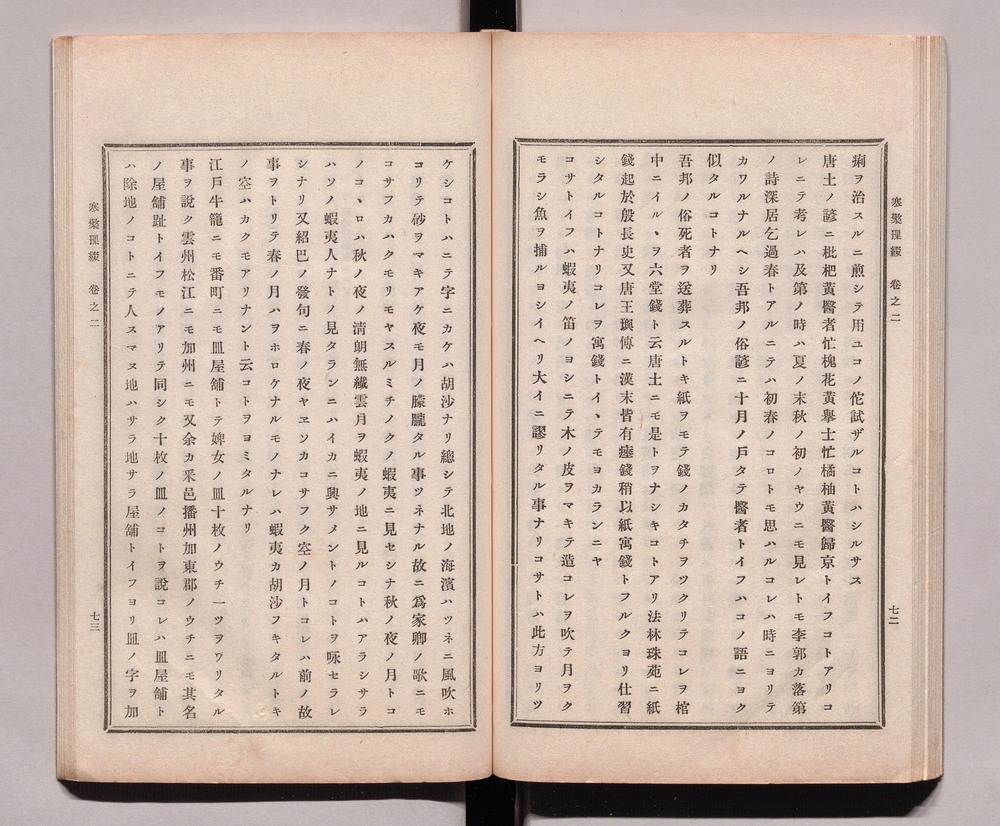 寒檠璅綴 卷之二
七二
痢ヲ治スルニ煎シテ用ユコノ佗試ザルコトハシルサス
唐土ノ諺ニ枇杷黃醫者忙槐花黃擧士忙橘柚黃醫歸京トイフコトアリコ
レニテ考レハ及第ノ時ハ夏ノ末秋ノ初ノヤウニモ見レトモ李郭カ落第
ノ詩深居乞過春トアルニテハ初春ノコロトモ思ハルコレハ時ニヨリテ
カワルナルヘシ吾邦ノ俗諺ニ十月ノ戶タテ醫者トイフハコノ語ニヨク
似タルコトナリ
吾邦ノ俗死者ヲ送葬スルトキ紙ヲモテ錢ノカタチヲツクリテコレヲ棺
中ニイルヽヲ六堂錢ト云唐土ニモ是トヲナシキコトアリ法林珠苑ニ紙
錢起於殷長史又唐王璵傳ニ漢末皆有瘞錢稍以紙寓錢トフルクヨリ仕習
シタルコトナリコレヲ寓錢トイヽテモヨカランニヤ
コサトイフハ蝦夷ノ笛ノヨシニテ木ノ皮ヲマキテ造コレヲ吹テ月ヲク
モラシ魚ヲ捕ルヨシイヘリ大イニ謬リタル事ナリコサトハ此方ヨリツ
ケシコトハニテ字ニカケハ胡沙ナリ總シテ北地ノ海濱ハツネニ風吹ホ
コリテ砂ヲマキアケ夜モ月ノ朦朧タル事ツネナル故ニ爲家卿ノ歌ニモ
コサフカハクモリモヤスルミチノクノ蝦夷ニ見セシナ秋ノ夜ノ月トコ
ノコヽロハ秋ノ夜ノ清朗無纎雲月ヲ蝦夷ノ地ニ見ルコトハアラシサラ
ハソノ蝦夷人ナトノ見タランニハイカニ興サメントノコトヲ咏セラレ
シナリ又紹巴ノ發句ニ春ノ夜ヤヱソカコサフク空ノ月トコレハ前ノ故
事ヲトリテ春ノ月ハヲホロケナルモノナレハ蝦夷カ胡沙フキタルトキ
ノ空ハカクモアリナント云コトヲヨミタルナリ
江戶牛籠ニモ番町ニモ皿屋舖トテ婢女ノ皿十枚ノウチ一ツヲワリタル
事ヲ說ク雲州松江ニモ加州ニモ又余カ釆邑播州加東郡ノウチニモ其名
ノ屋舖趾トイフモノアリテ同シク十枚ノ皿ノコトヲ說コレハ皿屋舖ト
ハ除地ノコトニテ人スマヌ地ハサラ地サラ屋舖トイフヨリ皿ノ字ヲ加
寒檠璅綴 卷之二
七三